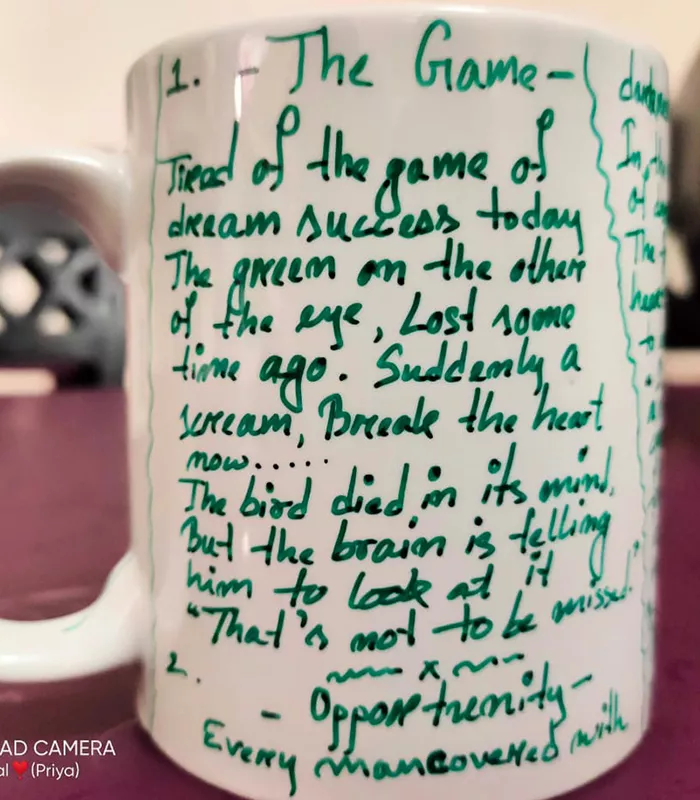 1. - The Game -
Tired of the game of
dream success today
The green on the other
of the eye, Lost some
time ago. Suddenly a
scream, Break the heart
now.....
The bird died in its mind.
But the brain is telling
him to look at it
"That's not to be missed."
x
2.
- Opportunity -
Every man covered with
In
of
The
to
AD CAMERA
al ❤ (Priya)